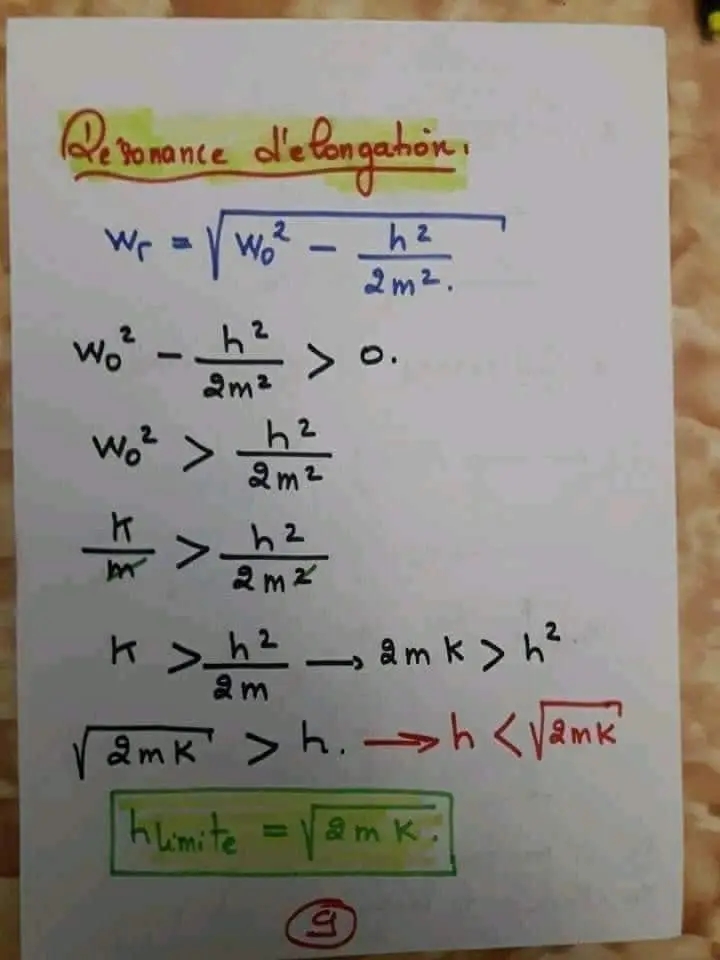 Résonance d'elongation.
Wr = √(W₀² - h²/2m².)
W₀² - h²/2m² > 0.
W₀² > h²/2m²
K/m > h²/2m²
K > h²/2m → 2mK > h²
√2mK > h. → h < √2mK
hLimite = √2mK.
9